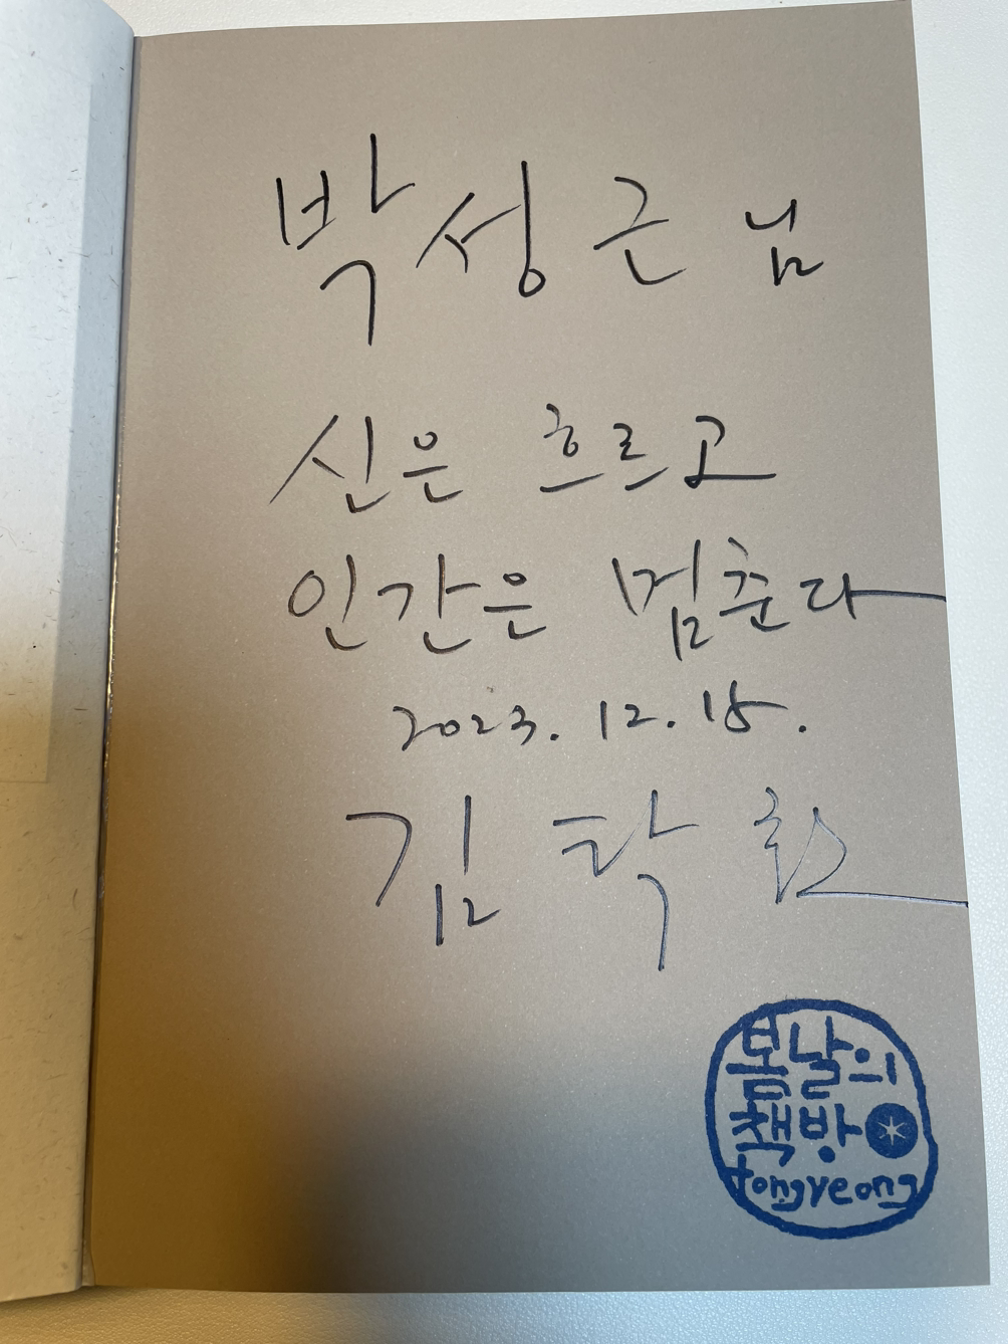 박성근 님
신은 흐르고
인간은 멈춘다
2023. 12. 15.
김탁환
봄날의
책방
tongyeong